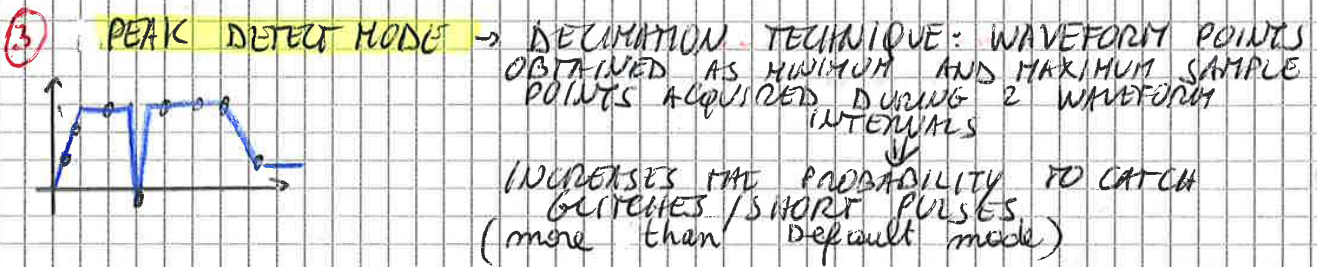 3 PEAK DETECT MODE → DECIMATION TECHNIQUE: WAVEFORM POINTS
OBTAINED AS MINIMUM AND MAXIMUM SAMPLE
POINTS ACQUIRED DURING 2 WAVEFORM
INTERVALS
INCREASES THE PROBABILITY TO CATCH
GLITCHES/SHORT PULSES
(more than Default mode)